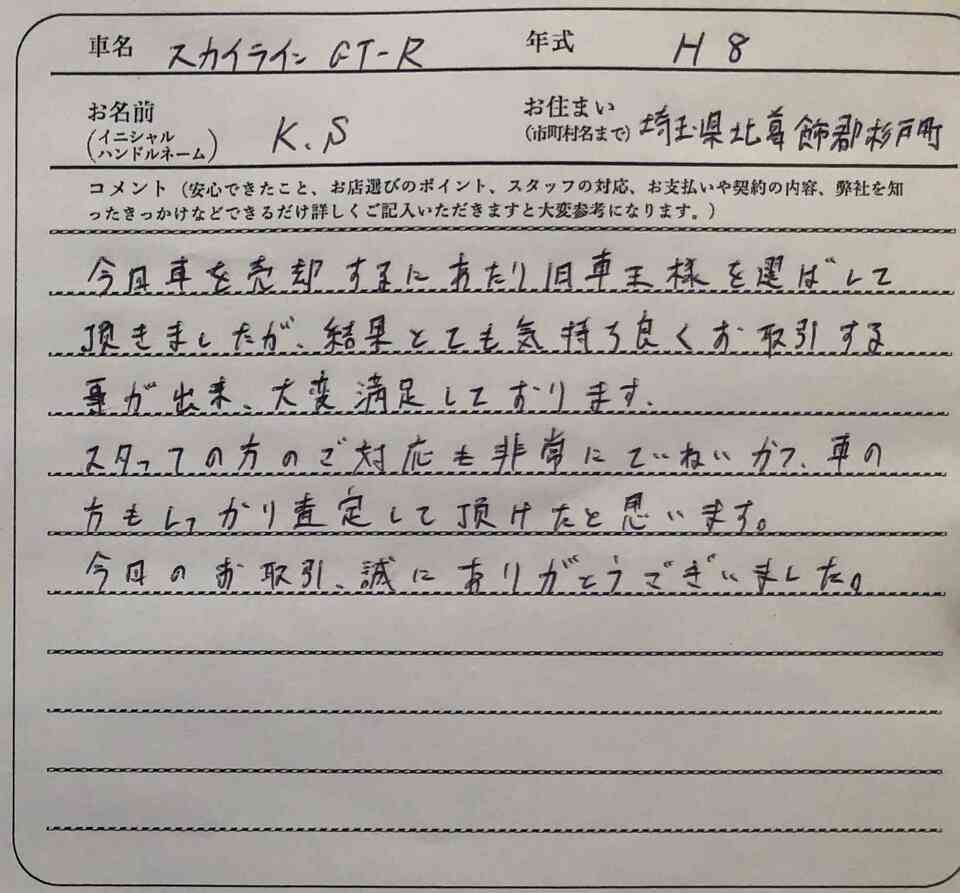 車名 スカイライン GT-R 年式 H8
お名前 (イニシャル ハンドルネーム) K.S お住まい (市町村名まで) 埼玉県北葛飾郡杉戸町
コメント（安心できたこと、お店選びのポイント、スタッフの対応、お支払いや契約の内容、弊社を知
ったきっかけなどできるだけ詳しくご記入いただきますと大変参考になります。）
今回車を売却するにあたり旧車王様を選ばして
頂きましたが、結果とても気持ち良くお取引する
事が出来、大変満足しております.
スタッフの方のご対応も非常にていねいかつ、車の
方もしっかり査定して頂けたと思います。
今回のお取引、誠にありがとうございました。